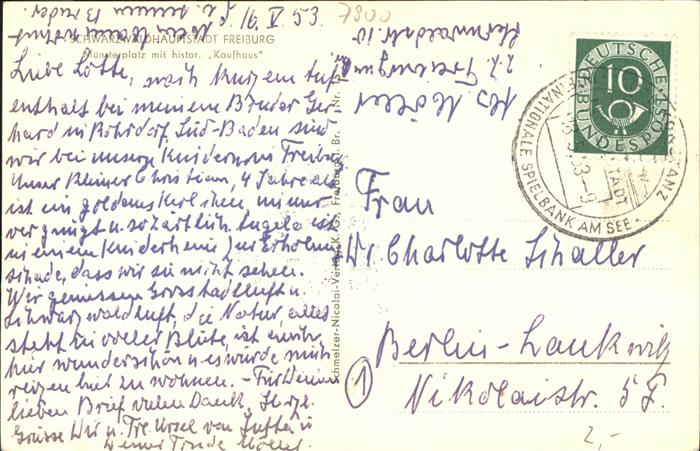 d. 16. V. 53.
7800
SCHWARZWALDHAUPTSTADT FREIBURG
Münsterplatz mit histor. „Kaufhaus"
Liebe Lotte, nach kurzem Auf-
enthalt bei meinem Bruder Ger-
hard in Rohrdorf, Süd-Baden sind
wir bei unsern Kindern in Freiburg
Unser kleiner Christian, 4 Jahre alt
ist ein goldenes Kerlchen, immer
vergnügt u. so zärtlich. Angela ist
in einem Kinderheim zur Erholung
schade, dass wir sie nicht sehen.
Wir geniessen Grosstadtluft u.
Schwarzwaldluft, die Natur, alles
steht in voller Blüte, ist
hier wunderschön u es würde mich
reizen hier zu wohnen. - Für Deinen
lieben Brief vielen Dank. Herzl.
Grüsse Dir u. Frl. Ursel von
Deiner Trude Möller.
Abs Möller
z. Z. Freiburg
Schmelzer-Nicolai-Verlag K. G., Freiburg i. Br. · Nr.
DEUTSCHE BUNDESPOST
10
KONSTANZ
INTERNATIONALE SPIELBANK AM SEE
Frau
Dr Charlotte Schaller
Berlin-Lankwitz
Nikolaistr. 5 F.
1
2,-